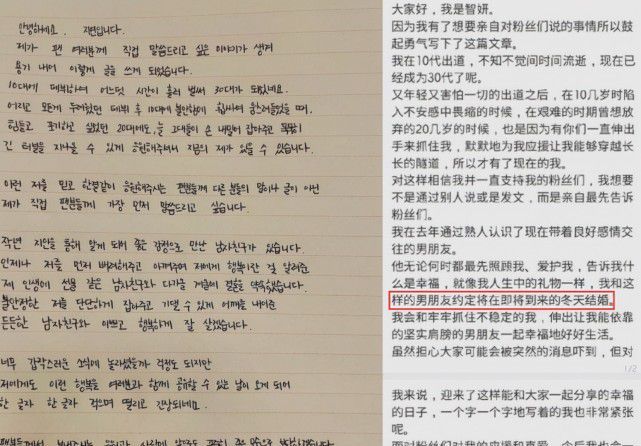 안녕하세요. 지연입니다.
제가 팬 여러분께 직접 말씀드리고 싶은 이야기가 생겨
용기 내어 이렇게 글을 쓰게 되었습니다.
10대에 데뷔하여 어느덧 시간이 흘러 벌써 30대가 되었네요.
어리고 모든게 두려웠던 데뷔 후 10대에 불안함에 휩싸여 움츠러들었을 때,
힘들고 포기하고 싶었던 20대에도, 늘 그대들이 손 내밀어 잡아주고 묵묵히
긴 터널을 지나올 수 있게 응원해주셔서 지금의 제가 있을 수 있습니다.
이런 저를 믿고 한결같이 응원해주시는 팬분들께 다른 분들의 말이나 글이 아닌
제가 직접 팬분들께 가장 먼저 말씀드리고 싶습니다.
작년 지인을 통해 알게 되어 좋은 감정으로 만난 남자친구가 있습니다.
언제나 저를 먼저 배려해주고 아껴주며 저에게 행복이란 걸 알려준
제 인생에 선물 같은 남자친구와 다가올 겨울에 결혼을 약속했습니다.
불안정한 저를 단단하게 잡아주고 기댈 수 있게 어깨를 내어준
든든한 남자친구와 이쁘고 행복하게 잘 살겠습니다.
너무 갑작스러운 소식에 놀라셨을까 걱정도 되지만
저에게도 이런 행복을 여러분과 함께 공유할 수 있는 날이 오게 되어
한 글자 한 글자 적으며 떨리고 긴장되네요.
大家好，我是智妍。
因为我有了想要亲自对粉丝们说的事情所以鼓
起勇气写下了这篇文章。
我在10代出道，不知不觉间时间流逝，现在已
经成为30代了呢。
又年轻又害怕一切的出道之后，在10几岁时陷
入不安感中畏缩的时候，在艰难的时期曾想放
弃的20几岁的时候，也是因为有你们一直伸出
手来抓住我，默默地为我应援让我能够穿越长
长的隧道，所以才有了现在的我。
对这样相信我并一直支持我的粉丝们，我想要
不是通过别人说或是发文，而是亲自最先告诉
粉丝们。
我在去年通过熟人认识了现在带着良好感情交
往的男朋友。
他无论何时都最先照顾我、爱护我，告诉我什
么是幸福，就像我人生中的礼物一样，我和这
样的男朋友约定将在即将到来的冬天结婚。
我会和牢牢抓住不稳定的我，伸出让我能依靠
的坚实肩膀的男朋友一起幸福地好好生活。
虽然担心大家可能会被突然的消息吓到，但对
1/2
我来说，迎来了这样能和大家一起分享的幸福
的日子，一个字一个字地写着的我也非常紧张
呢。